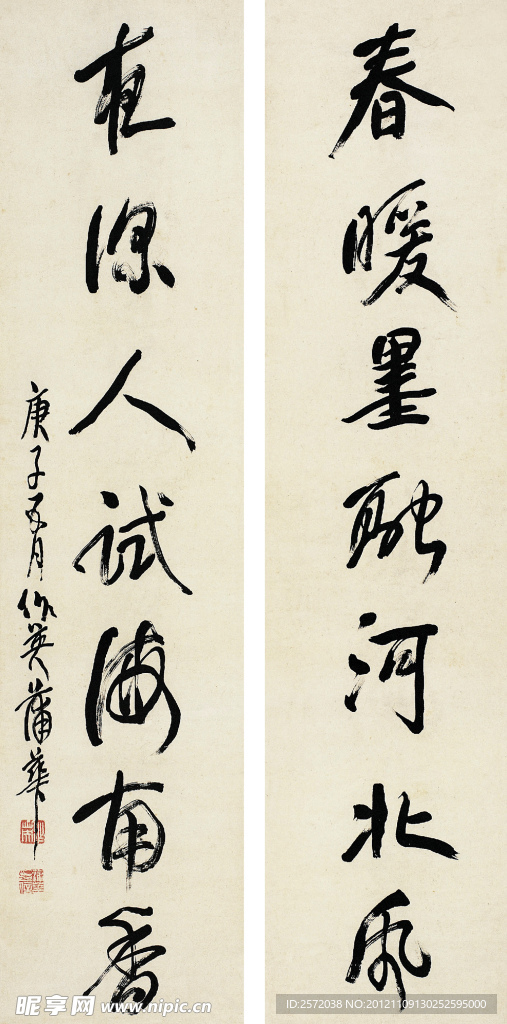 春暖墨融河北风
夜深人试海南香
庚子五月作英蒲华
昵享网 www.nipic.cn
ID:2572038 NO:20121109130252595000